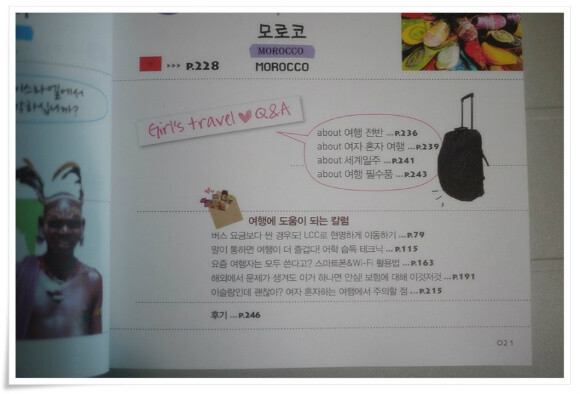 모로코
MOROCCO
MOROCCO
>>> P.228
이스라엘에서
Girl's travel ♥ Q&A
about 여행 전반 ... P.236
about 여자 혼자 여행 ... P.239
about 세계일주 ... P.241
about 여행 필수품 ... P.243
여행에 도움이 되는 칼럼
버스 요금보다 싼 경우도! LCC로 현명하게 이동하기 ... P.79
말이 통하면 여행이 더 즐겁다! 어학 습득 테크닉 ... P.115
요즘 여행자는 모두 쓴다고? 스마트폰&Wi-Fi 활용법 ... P.163
해외에서 문제가 생겨도 이거 하나면 안심! 보험에 대해 이것저것 ... P.191
이슬람인데 괜찮아? 여자 혼자하는 여행에서 주의할 점 ... P.215
후기 ... P.246
021